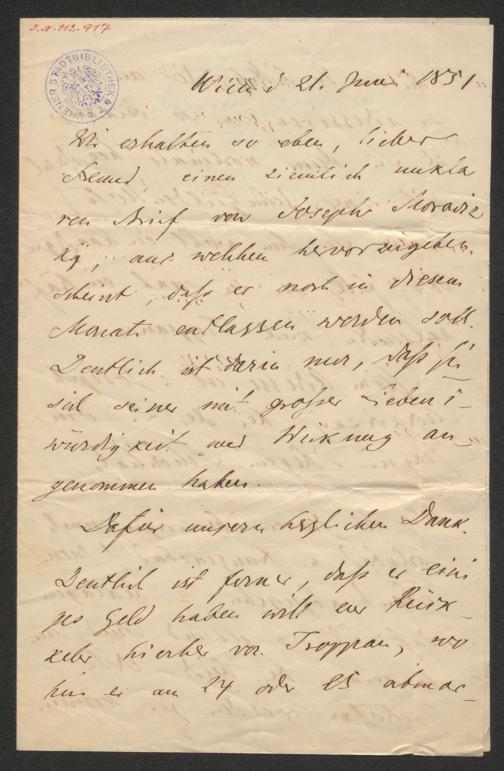 J.N. 112.917
WIENER STADTBIBLIOTHEK
Wien d 21. Juni 1851
Wir erhalten so eben, lieber
Freund, einen ziemlich unkla
ren Brief von Joseph
aus welchem hervorzugehen
scheint, daß er noch in diesem
Monate entlassen werden soll.
Deutlich ist darin nur, daß Sie
sich seiner mit großer Liebens-
würdigkeit und Wirkung an-
genommen haben.
Dafür unsern herzlichen Dank.
Deutlich ist ferner, daß er eini
ges Geld haben will zur Rück-
kehr hierher von Troppau, wo
hin er am 24 oder 25 abmar-